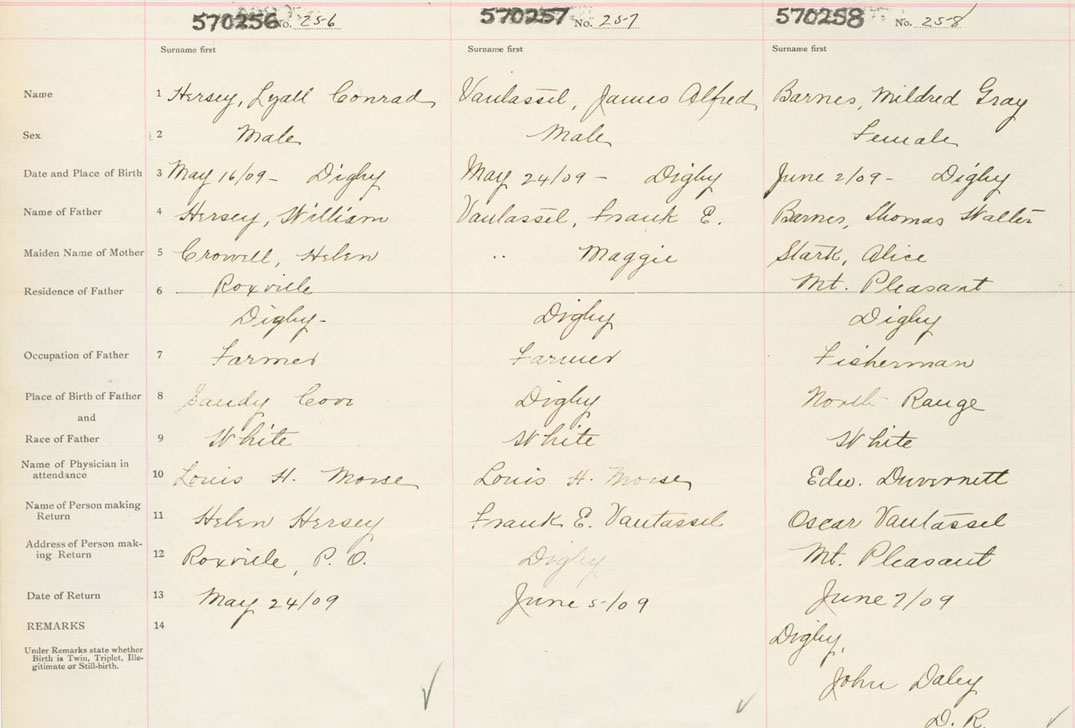 570256 No. 256
570257 No. 257
570258 No. 258
Surname first
Surname first
Surname first
Name 1 Hersey, Lyall Conrad Vantassel, James Alfred Barnes, Mildred Gray
Sex 2 Male Male Female
Date and Place of Birth 3 May 16/09 - Digby May 24/09 - Digby June 2/09 - Digby
Name of Father 4 Hersey, William Vantassel, Frank E. Barnes, Thomas Walter
Maiden Name of Mother 5 Crowell, Helen " Maggie Stark, Alice
Residence of Father 6 Roxville Mt. Pleasant
Digby - Digby Digby
Occupation of Father 7 Farmer Farmer Fisherman
Place of Birth of Father 8 Sandy Cove Digby North Range
and
Race of Father 9 White White White
Name of Physician in
attendance 10 Louis H. Morse Louis H. Morse Edw. Duvernett
Name of Person making
Return 11 Helen Hersey Frank E. Vantassel Oscar Vantassel
Address of Person mak-
ing Return 12 Roxville, P. O. Digby Mt. Pleasant
Date of Return 13 May 24/09 June 5/09 June 7/09
REMARKS 14
Under Remarks state whether
Birth is Twin, Triplet, Ille-
gitimate or Still-birth.
Digby,
John Daley
D. R.